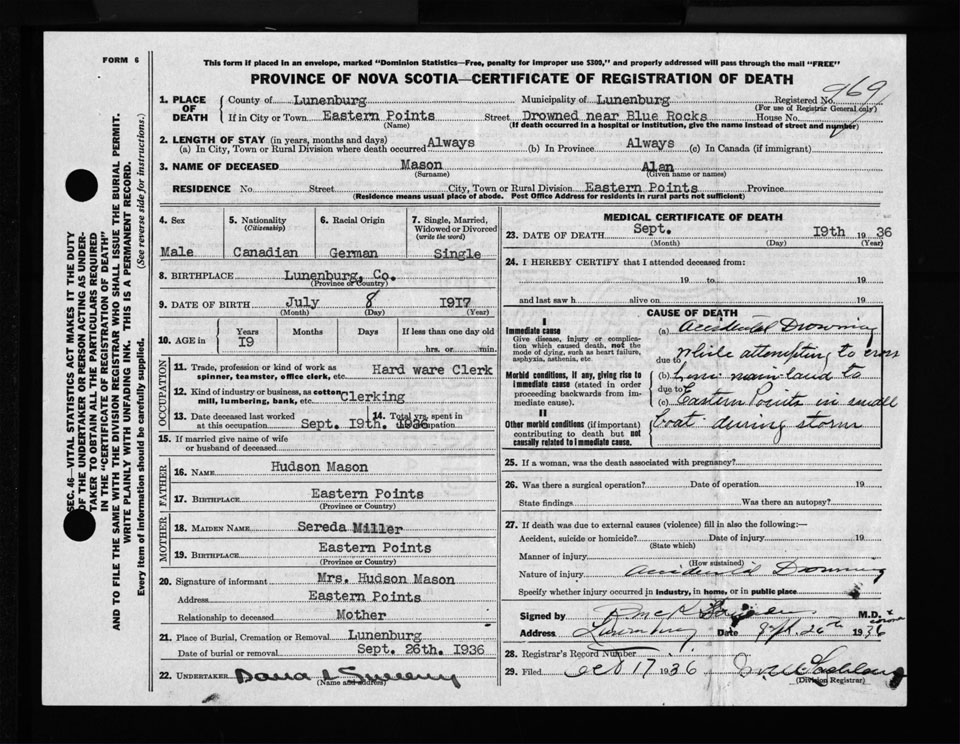 FORM 6
This form if placed in an envelope, marked "Dominion Statistics—Free, penalty for improper use $300," and properly addressed will pass through the mail "FREE"
PROVINCE OF NOVA SCOTIA—CERTIFICATE OF REGISTRATION OF DEATH
969
1. PLACE OF DEATH
County of Lunenburg Municipality of Lunenburg Registered No.
(For use of Registrar General only)
If in City or Town Eastern Points Street Drowned near Blue Rocks House No.
(Name) (If death occurred in a hospital or institution, give the name instead of street and number)
2. LENGTH OF STAY (in years, months and days)
(a) In City, Town or Rural Division where death occurred Always (b) In Province Always (c) In Canada (if immigrant)
3. NAME OF DECEASED Mason Alan
(Surname) (Given name or names)
RESIDENCE No. Street City, Town or Rural Division Eastern Points Province
(Residence means usual place of abode. Post Office Address for residents in rural parts not sufficient)
4. Sex Male
5. Nationality (Citizenship) Canadian
6. Racial Origin German
7. Single, Married, Widowed or Divorced (write the word) Single
8. BIRTHPLACE Lunenburg, Co.
(Province or Country)
9. DATE OF BIRTH July 8 1917
(Month) (Day) (Year)
10. AGE in Years Months Days If less than one day old
19 hrs. or min.
OCCUPATION
11. Trade, profession or kind of work as spinner, teamster, office clerk, etc. Hard ware Clerk
12. Kind of industry or business, as cotton mill, lumbering, bank, etc. Clerking
13. Date deceased last worked at this occupation Sept. 19th. 1936
14. Total yrs. spent in occupation
15. If married give name of wife or husband of deceased
FATHER
16. NAME Hudson Mason
17. BIRTHPLACE Eastern Points
(Province or Country)
MOTHER
18. MAIDEN NAME Sereda Miller
19. BIRTHPLACE Eastern Points
(Province or Country)
20. Signature of informant Mrs. Hudson Mason
Address Eastern Points
Relationship to deceased Mother
21. Place of Burial, Cremation or Removal Lunenburg
Date of burial or removal Sept. 26th. 1936
22. UNDERTAKER Sweeny
(Name and address)
MEDICAL CERTIFICATE OF DEATH
23. DATE OF DEATH Sept. 19th 1936
(Month) (Day) (Year)
24. I HEREBY CERTIFY that I attended deceased from:
19 to 19
and last saw h alive on 19
CAUSE OF DEATH
I
Immediate cause
Give disease, injury or complication which caused death, not the mode of dying, such as heart failure, asphyxia, asthenia, etc.
(a) Accidental Drowning
due to while attempting to cross
Morbid conditions, if any, giving rise to immediate cause (stated in order proceeding backwards from immediate cause).
(b) from mainland to
due to
(c) Eastern Points in small
II
Other morbid conditions (if important) contributing to death but not causally related to immediate cause.
boat during storm
25. If a woman, was the death associated with pregnancy?
26. Was there a surgical operation? Date of operation 19
State findings Was there an autopsy?
27. If death was due to external causes (violence) fill in also the following:—
Accident, suicide or homicide? Date of injury 19
(State which)
Manner of injury
(How sustained)
Nature of injury Accidental Drowning
Specify whether injury occurred in industry, in home, or in public place
Signed by M.D.
Address Lunenburg Date Sept. 26th 1936
28. Registrar's Record Number
29. Filed Oct 17 1936
(Division Registrar)
SEC. 46—VITAL STATISTICS ACT MAKES IT THE DUTY
OF THE UNDERTAKER OR PERSON ACTING AS UNDERTAKER TO OBTAIN ALL THE PARTICULARS REQUIRED
IN THE "CERTIFICATE OF REGISTRATION OF DEATH"
AND TO FILE THE SAME WITH THE DIVISION REGISTRAR WHO SHALL ISSUE THE BURIAL PERMIT.
WRITE PLAINLY WITH UNFADING INK. THIS IS A PERMANENT RECORD.
Every item of information should be carefully supplied. (See reverse side for instructions.)